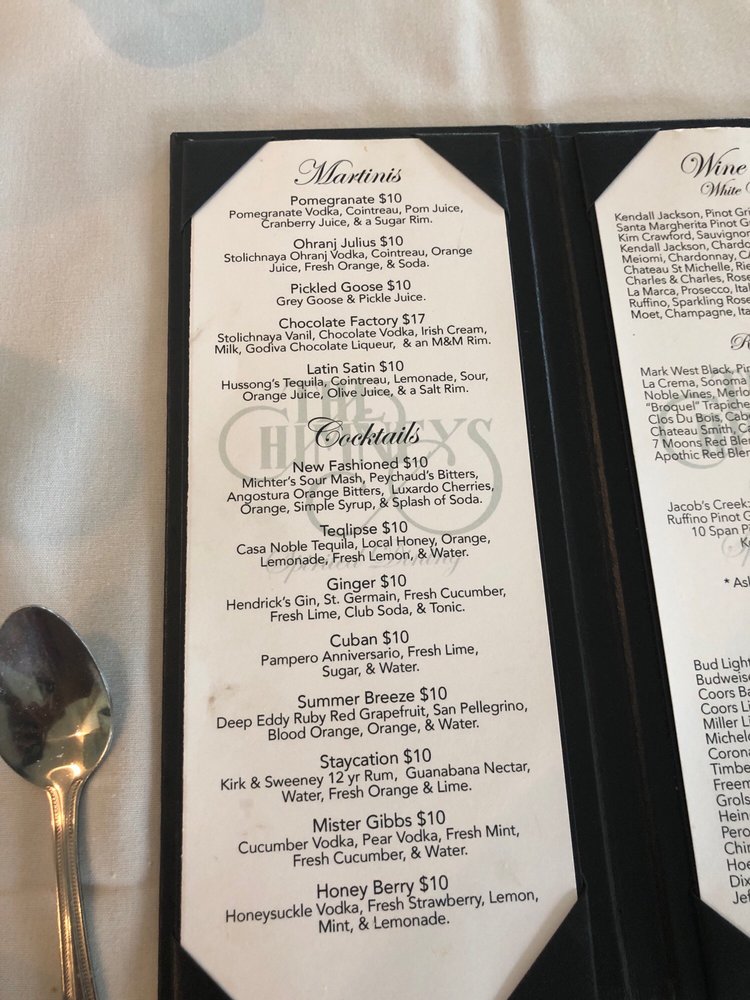 Martinis
Pomegranate $10
Pomegranate Vodka, Cointreau, Pom Juice,
Cranberry Juice, & a Sugar Rim.
Ohranj Julius $10
Stolichnaya Ohranj Vodka, Cointreau, Orange
Juice, Fresh Orange, & Soda.
Pickled Goose $10
Grey Goose & Pickle Juice.
Chocolate Factory $17
Stolichnaya Vanil, Chocolate Vodka, Irish Cream,
Milk, Godiva Chocolate Liqueur, & an M&M Rim.
Latin Satin $10
Hussong's Tequila, Cointreau, Lemonade, Sour,
Orange Juice, Olive Juice, & a Salt Rim.
THE
Cocktails
New Fashioned $10
Michter's Sour Mash, Peychaud's Bitters,
Angostura Orange Bitters, Luxardo Cherries,
Orange, Simple Syrup, & Splash of Soda.
Teqlipse $10
Casa Noble Tequila, Local Honey, Orange,
Lemonade, Fresh Lemon, & Water.
Spirited Dining
Ginger $10
Hendrick's Gin, St. Germain, Fresh Cucumber,
Fresh Lime, Club Soda, & Tonic.
Cuban $10
Pampero Anniversario, Fresh Lime,
Sugar, & Water.
Summer Breeze $10
Deep Eddy Ruby Red Grapefruit, San Pellegrino,
Blood Orange, Orange, & Water.
Staycation $10
Kirk & Sweeney 12 yr Rum, Guanabana Nectar,
Water, Fresh Orange & Lime.
Mister Gibbs $10
Cucumber Vodka, Pear Vodka, Fresh Mint,
Fresh Cucumber, & Water.
Honey Berry $10
Honeysuckle Vodka, Fresh Strawberry, Lemon,
Mint, & Lemonade.
Wine
White
Kendall Jackson, Pinot Gri
Santa Margherita Pinot G
Kim Crawford, Sauvignon
Kendall Jackson, Chardo
Meiomi, Chardonnay, CA
Chateau St Michelle, Rie
Charles & Charles, Rose
La Marca, Prosecco, Ital
Ruffino, Sparkling Rose
Moet, Champagne, Ita
Mark West Black, Pin
La Crema, Sonoma
Noble Vines, Merlo
"Broquel" Trapiche
Clos Du Bois, Cabe
Chateau Smith, Ca
7 Moons Red Blen
Apothic Red Blen
Jacob's Creek:
Ruffino Pinot G
10 Span Pi
* Ask
Bud Light
Budweise
Coors Ba
Coors Li
Miller Li
Michelo
Corona
Timbe
Freem
Grols
Hein
Pero
Chi
Hoe
Dix
Jef